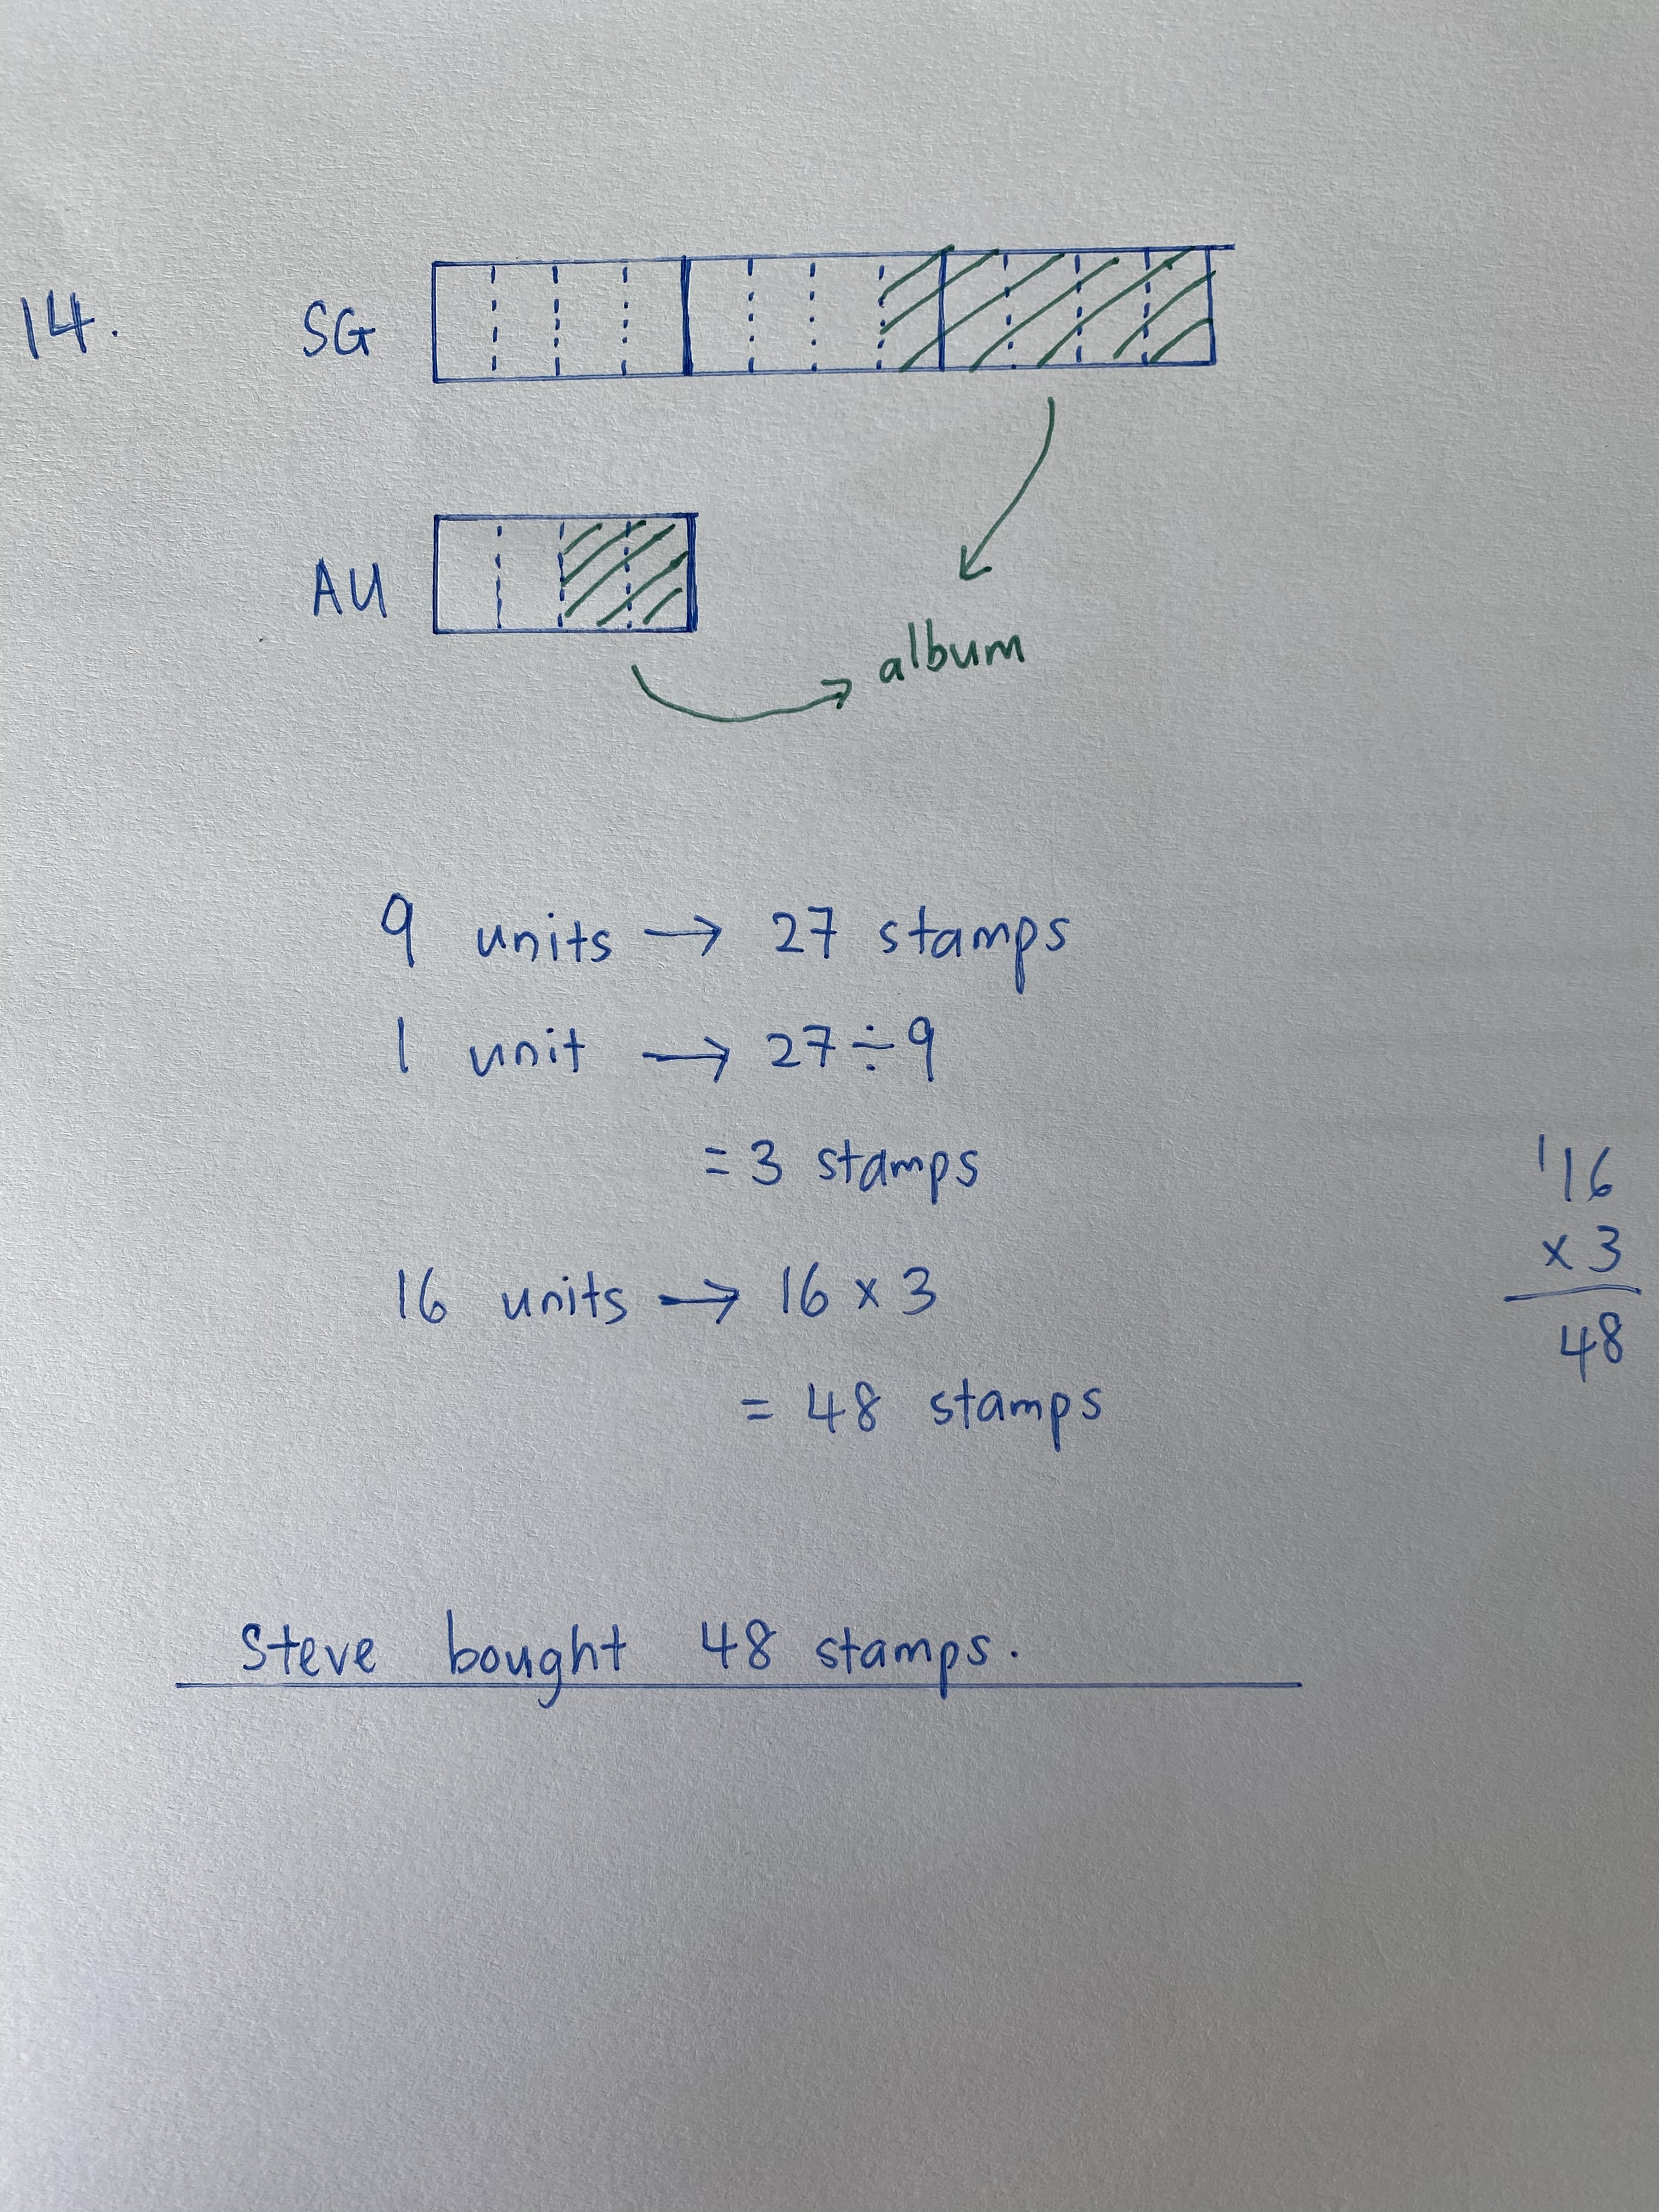 14.
SG
AU
album
9 units → 27 stamps
1 unit → 27 ÷ 9
= 3 stamps
16 units → 16 x 3
= 48 stamps
¹16
x 3
48
Steve bought 48 stamps.